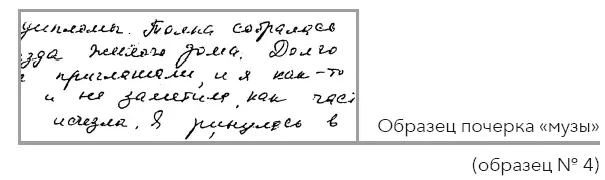 дипломы. Толпа собралась
зда жилого дома. Долго
приглашали, и я как-то
и не заметила, как час
исчезла. Я ринулась в
Образец почерка «музы»
(образец № 4)